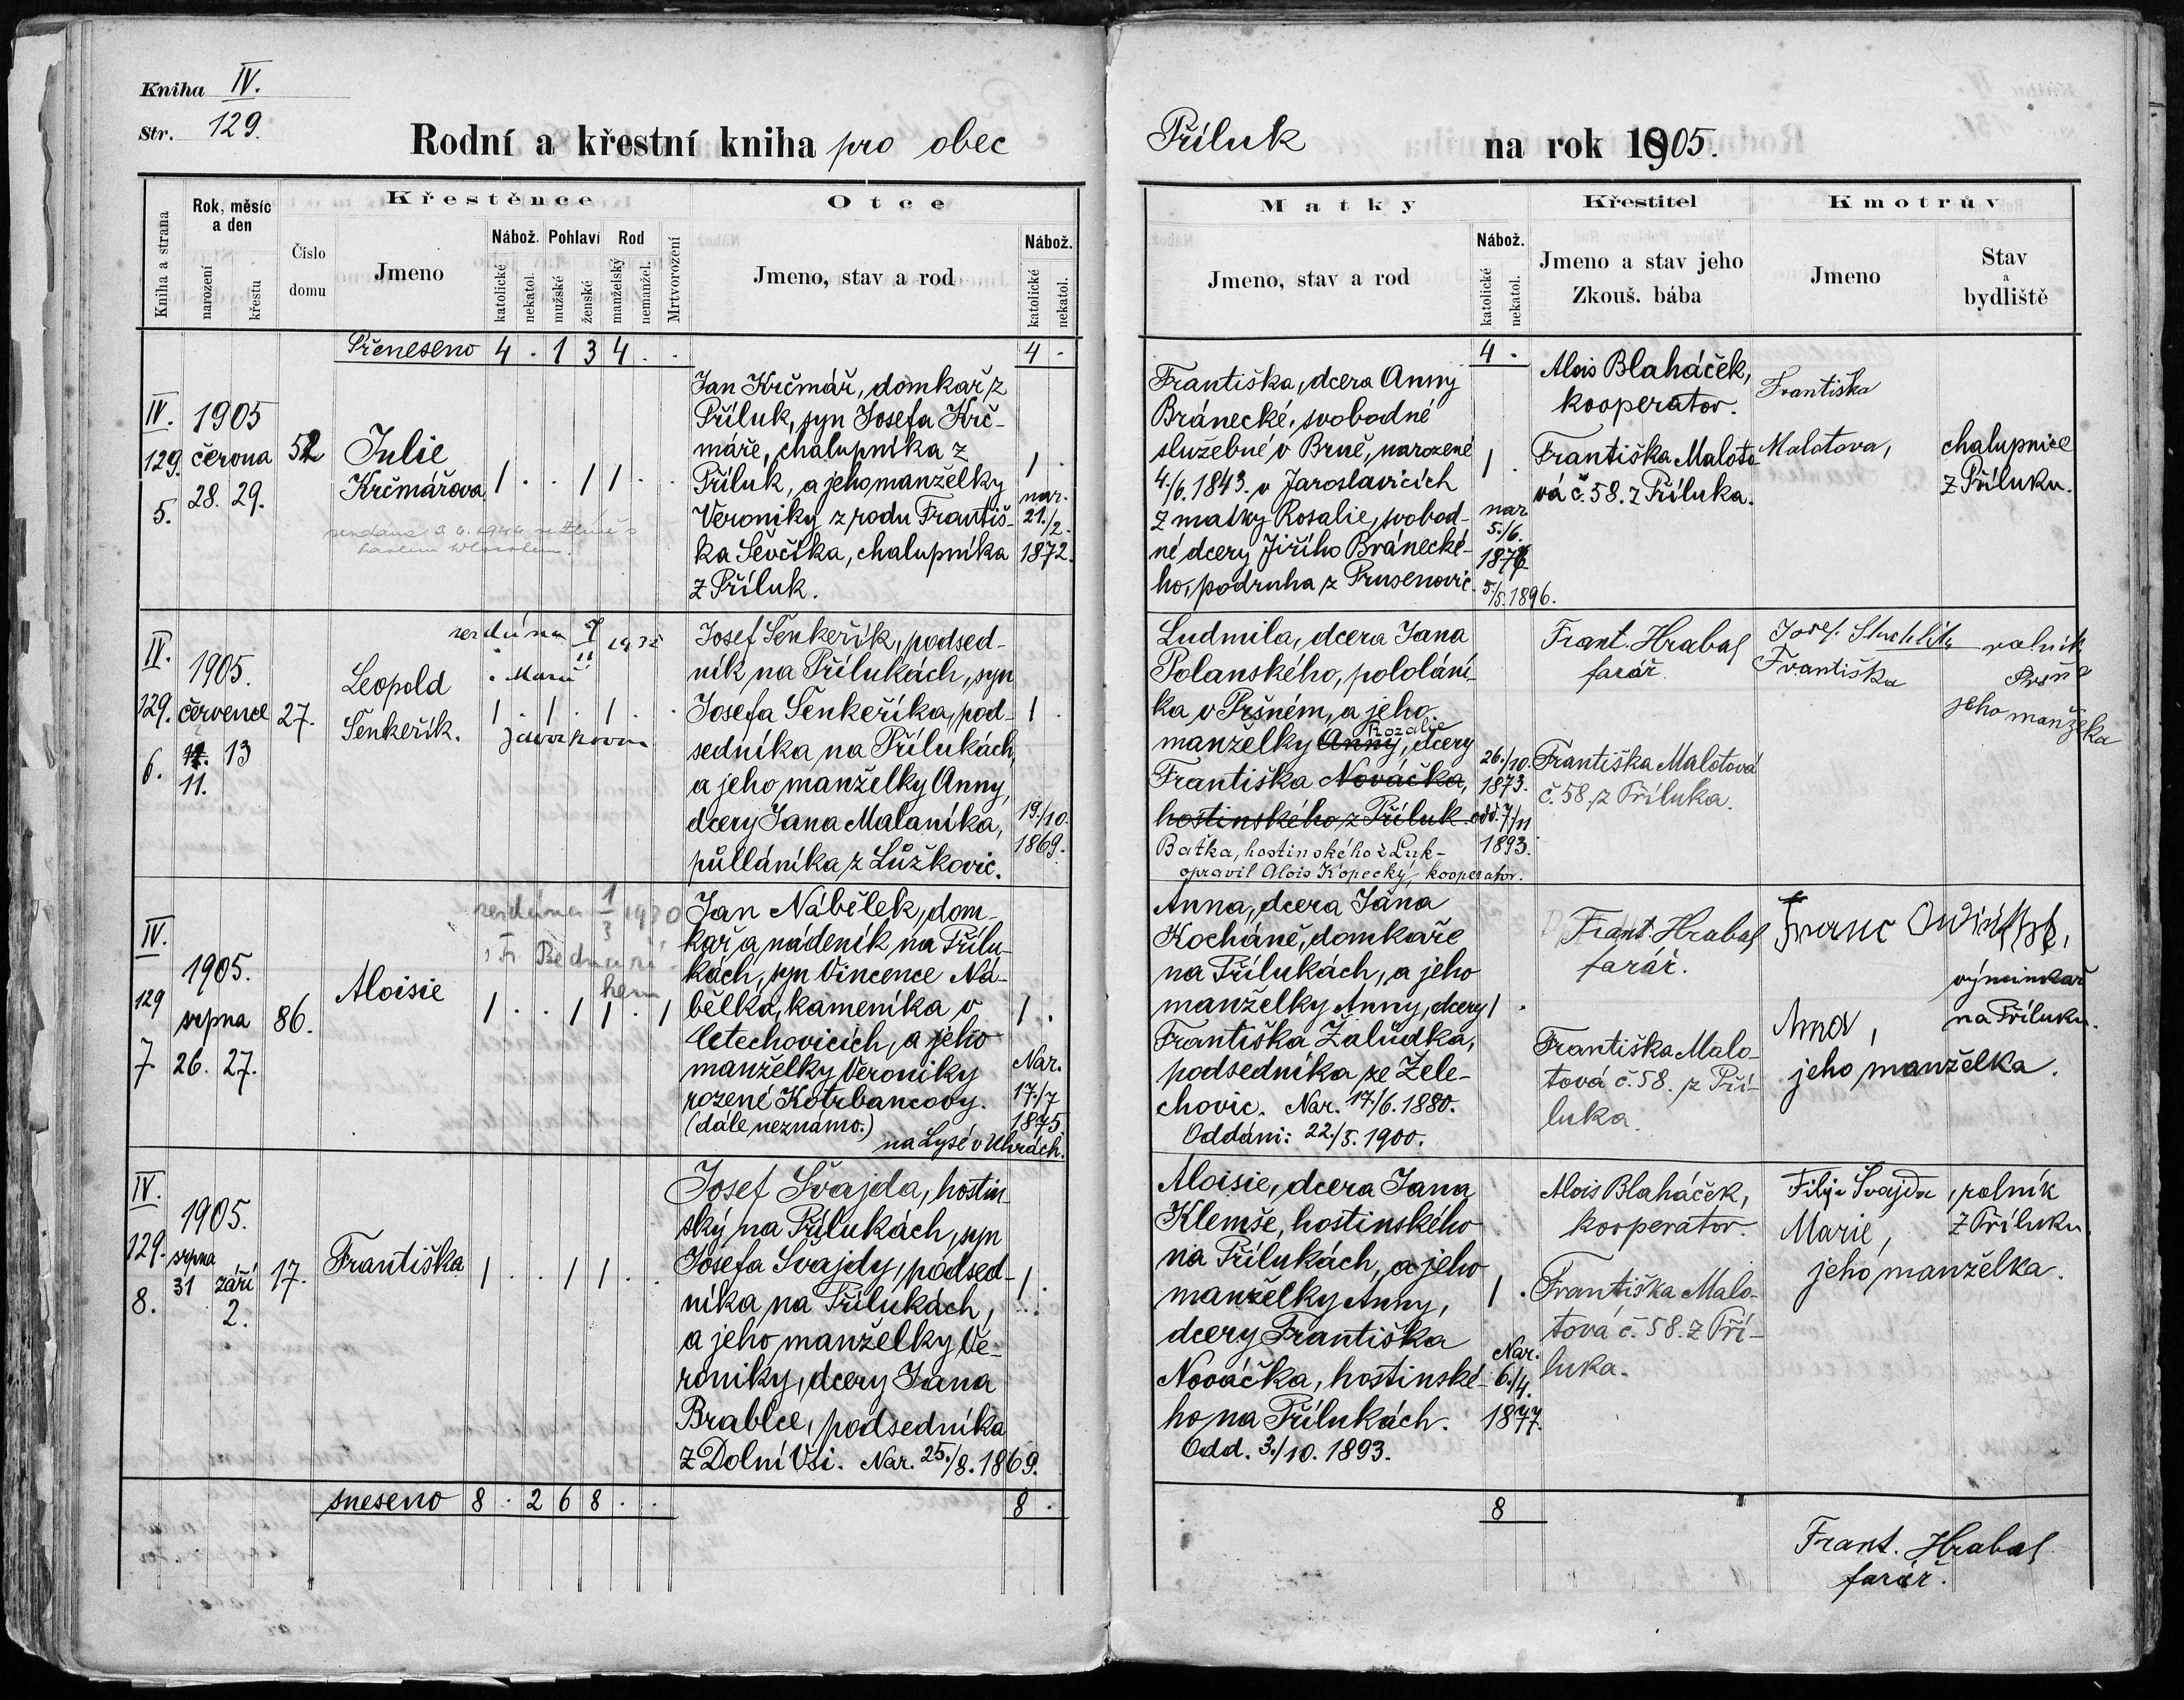 Kniha IV.
Str. 129.
Rodní a křestní kniha pro obec
Příluk na rok 1905.
Kniha a strana
Rok, měsíc a den
narození
křestu
Číslo domu
Křestěnce
Jmeno
Nábož.
katolické
nekatol.
Pohlaví
mužské
ženské
Rod
manželský
nemanžel.
Mrtvorození
Otce
Jmeno, stav a rod
Nábož.
katolické
nekatol.
Matky
Jmeno, stav a rod
Nábož.
katolické
nekatol.
Křestitel
Jmeno a stav jeho
Zkouš. bába
Kmotrův
Jmeno
Stav
a
bydliště
Přeneseno 4 . 1 3 4 . . 4 . 4 .
IV.
129.
5.
1905
června
28. 29.
52
Julie
Krčmářova
1 . . 1 1 . .
Jan Krčmář, domkař z
Příluk, syn Josefa Krč-
máře, chalupníka z
Příluk, a jeho manželky
Veroniky z rodu Františ-
ka Ševčíka, chalupníka
z Příluk.
1 .
nar.
21./2.
1872.
Františka, dcera Anny
Bránecké, svobodné
služebné v Brně, narozené
4./6. 1843. v Jaroslavicích
z matky Rosalie, svobod-
né dcery Jiřího Bránecké-
ho, podruha z Prusenovic.
1 .
nar
5./6.
1876
5./5. 1896.
Alois Blaháček,
kooperator.
Františka Maloto-
vá č. 58. z Příluka.
Františka
Malotova,
chalupnice
z Příluku.
IV.
129.
6.
1905.
července
11. 13
27.
Leopold
Šenkeřík.
1 . 1 . 1 . .
Josef Šenkeřík, podsed-
ník na Přílukách, syn
Josefa Šenkeříka, pod-
sedníka na Přílukách,
a jeho manželky Anny,
dcery Jana Malaníka,
půlláníka z Lůžkovic.
1 .
19./10.
1869.
Ludmila, dcera Jana
Polanského, pololání-
ka v Pršném, a jeho
Rozalie
manželky Anny, dcery
Františka Nováčka,
hostinského z Příluk.
Baťka, hostinského z Luk-
opravil Alois Kopecký, kooperator.
26./10.
1873.
odd. 7./11
1893.
Frant. Hrabal
farář.
Františka Malotová
č. 58. z Příluka.
Josef
Františka
rolník
jeho manželka
IV.
129
7.
1905.
srpna
26. 27.
86.
Aloisie
1 . . 1 1 . 1
Jan Nábělek, dom-
kař a nádeník na Přílu-
kách, syn Vincence Ná-
bělka, kameníka v
Letechovicích, a jeho
manželky Veroniky
rozené Kotrbancovy.
(dále neznámo.)
na Lysé v Uhrách.
1 .
Nar.
17./7
1875.
Anna, dcera Jana
Kocháně, domkaře
na Přílukách, a jeho
manželky Anny, dcery
Františka Žalůdka,
podsedníka ze Žele-
chovic. Nar. 17./6. 1880.
Oddáni: 22./5. 1900.
1 .
Frant. Hrabal
farář.
Františka Malo-
tová č. 58. z Pří-
luka.
Franc
výminkář
na Příluku.
Anna,
jeho manželka.
IV.
129.
8.
1905.
srpna
31 září
2.
17.
Františka
1 . . 1 1 . .
Josef Švajda, hostin-
ský na Přílukách, syn
Josefa Švajdy, podsed-
níka na Přílukách,
a jeho manželky Ve-
roniky, dcery Jana
Brablce, podsedníka
z Dolní Vsi. Nar. 25./8. 1869.
1 .
Aloisie, dcera Jana
Klemše, hostinského
na Přílukách, a jeho
manželky Anny,
dcery Františka
Nováčka, hostinské-
ho na Přílukách.
Odd. 3./10. 1893.
1 .
Nar.
6./4.
1877.
Alois Blaháček,
kooperator.
Františka Malo-
tová č. 58. z Pří-
luka.
Filip Švajda, rolník
Marie, z Příluku
jeho manželka.
sneseno 8 . 2 6 8 . . 8 . 8
Frant. Hrabal
farář.